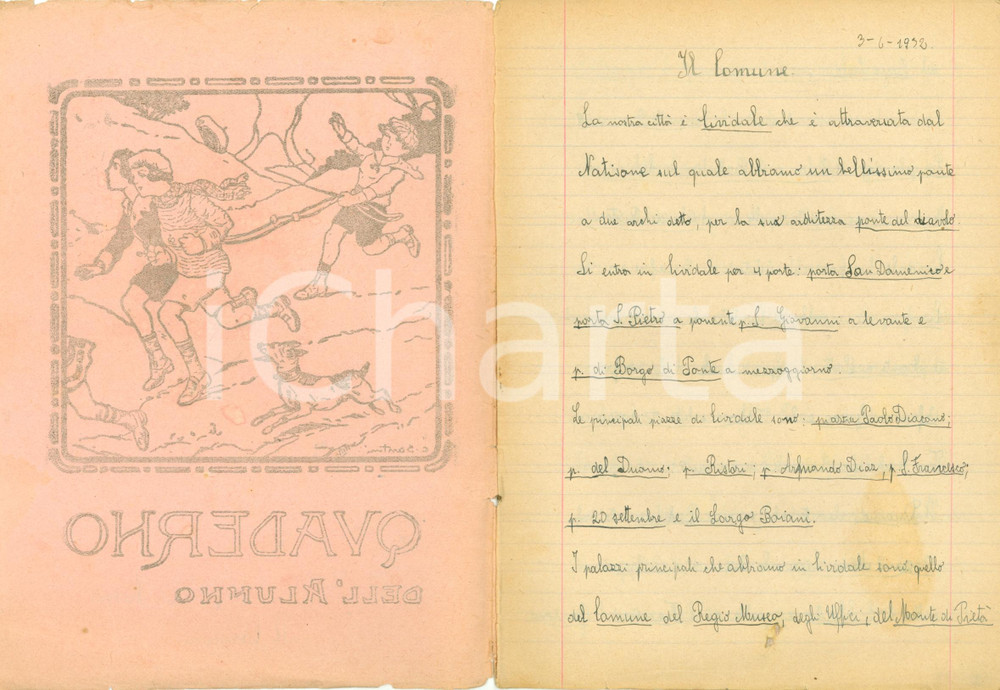 QVADERNO
DELL'ALUNNO
3-6-1932
Il Comune.
La nostra città è Cividale che è attraversata dal
Natisone sul quale abbiamo un bellissimo ponte
a due archi detto, per la sua arditezza ponte del diavolo
Si entra in Cividale per 4 porte: porta San Domenico e
porta S. Pietro a ponente p. S. Giovanni a levante e
p. di Borgo di Ponte a mezzogiorno.
Le principali piazze di Cividale sono: piazza Paolo Diacono;
p. del Duomo; p. Ristori; p. Armando Diaz, p. S. Francesco;
p. 20 settembre e il Largo Boiani.
I palazzi principali che abbiamo in Cividale sono quello
del Comune del Regio Museo, degli Uffici, del Monte di Pietà
iCharta